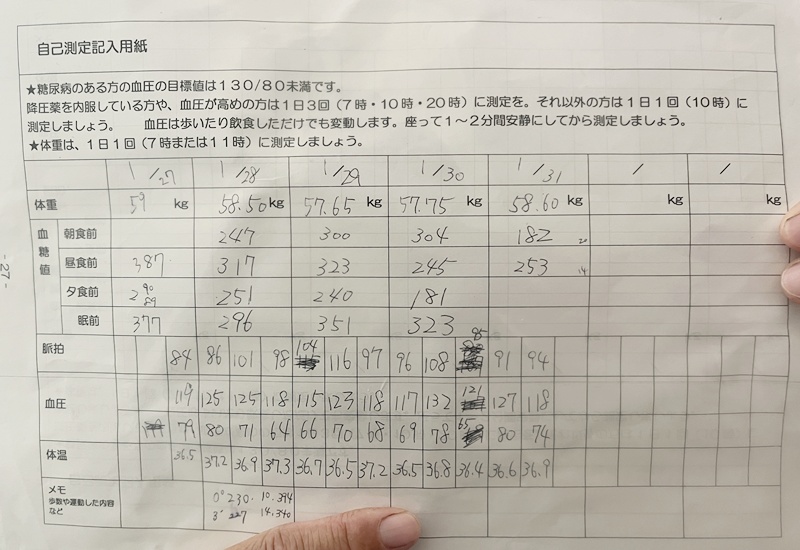 自己測定記入用紙
★糖尿病のある方の血圧の目標値は130/80未満です。
降圧薬を内服している方や、血圧が高めの方は1日3回（7時・10時・20時）に測定を。それ以外の方は1日1回（10時）に
測定しましょう。　血圧は歩いたり飲食しただけでも変動します。座って1～2分間安静にしてから測定しましょう。
★体重は、1日1回（7時または11時）に測定しましょう。
1/27 1/28 1/29 1/30 1/31 / /
体重 59 kg 58.50 kg 57.65 kg 57.75 kg 58.60 kg kg kg
血糖値
朝食前 247 300 304 182
昼食前 387 317 323 245 253 14
夕食前 290 89 251 240 181
眠前 377 296 351 323
脈拍 84 86 101 98 104 116 97 96 108 95 91 94
血圧 119 125 125 118 115 123 118 117 132 121 127 118
79 80 71 64 66 70 68 69 78 65 80 74
体温 36.5 37.2 36.9 37.3 36.7 36.5 37.2 36.5 36.8 36.4 36.6 36.9
メモ
歩数や運動した内容
など
0° 230. 10.394
3° 227 14.340
-27-